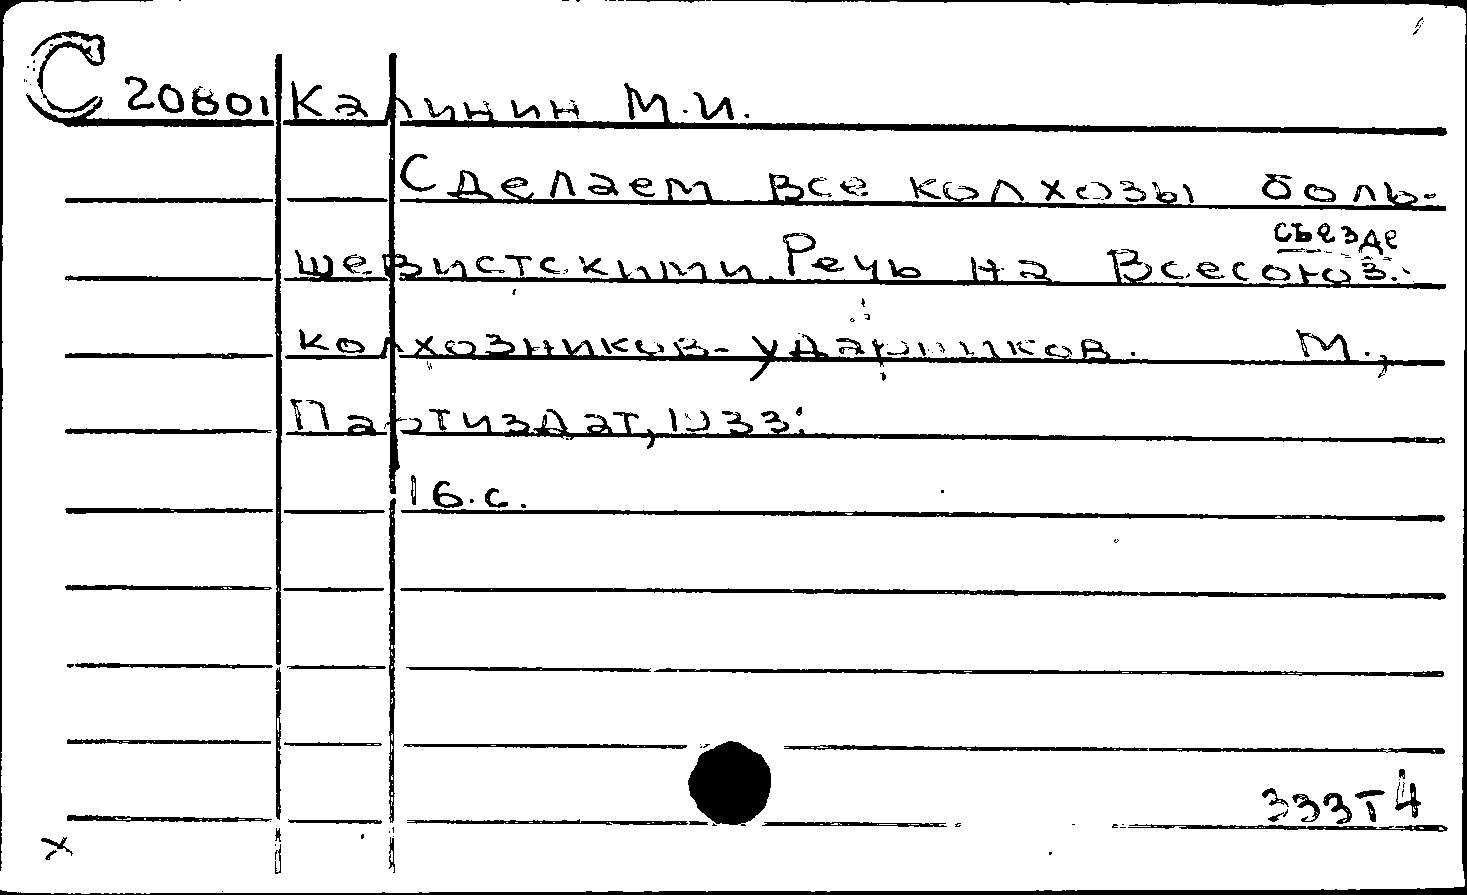 С 20801 Калинин М.И.
Сделаем все колхозы боль-
шевистскими. Речь на Всесоюз. съезде
колхозников-ударников. М.,
Партиздат, 1933.
16.с.
333т4
x